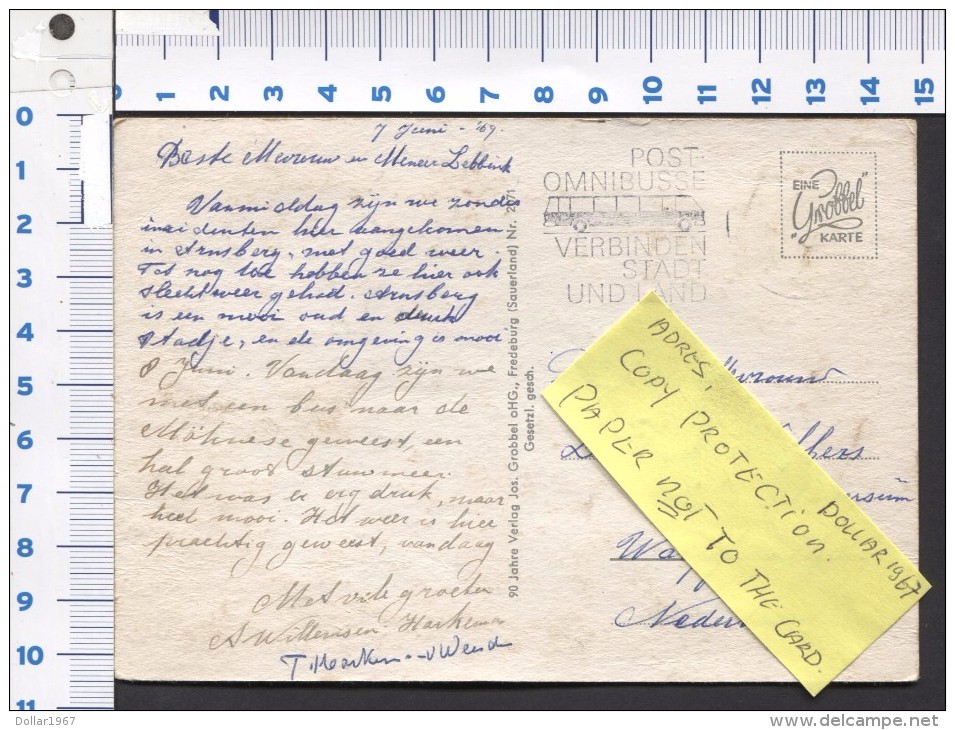 0 1 2 3 4 5 6 7 8 9 10 11 12 13 14 15
0
1
2
3
4
5
6
7
8
9
10
11
7 Juni - '69.
Beste Mevrouw en Meneer Lebbink
Vanmiddag zijn we zonder
incidenten hier aangekomen
in Arnsberg, met goed weer.
Tot nog toe hebben ze hier ook
slecht weer gehad. Arnsberg
is een mooi oud en druk
stadje, en de omgeving is mooi
8 Juni Vandaag zijn we
met een bus naar de
Möhnese geweest, een
hal groot stuwmeer.
Het was er erg druk, maar
heel mooi. Het weer is hier
prachtig geweest, vandaag
Met vele groeten
A Willemsen Harkema
90 Jahre Verlag Jos. Grobbel oHG., Fredeburg (Sauerland) Nr. 2971
Gesetzl. gesch.
POST-
OMNIBUSSE
VERBINDEN
STADT
UND LAND
EINE
"Grobbel"
KARTE
ADRES,
COPY PROTECTION.
PAPER NOT TO THE CARD.
DOLLAR 1967
Dollar1967
www.delcampe.net